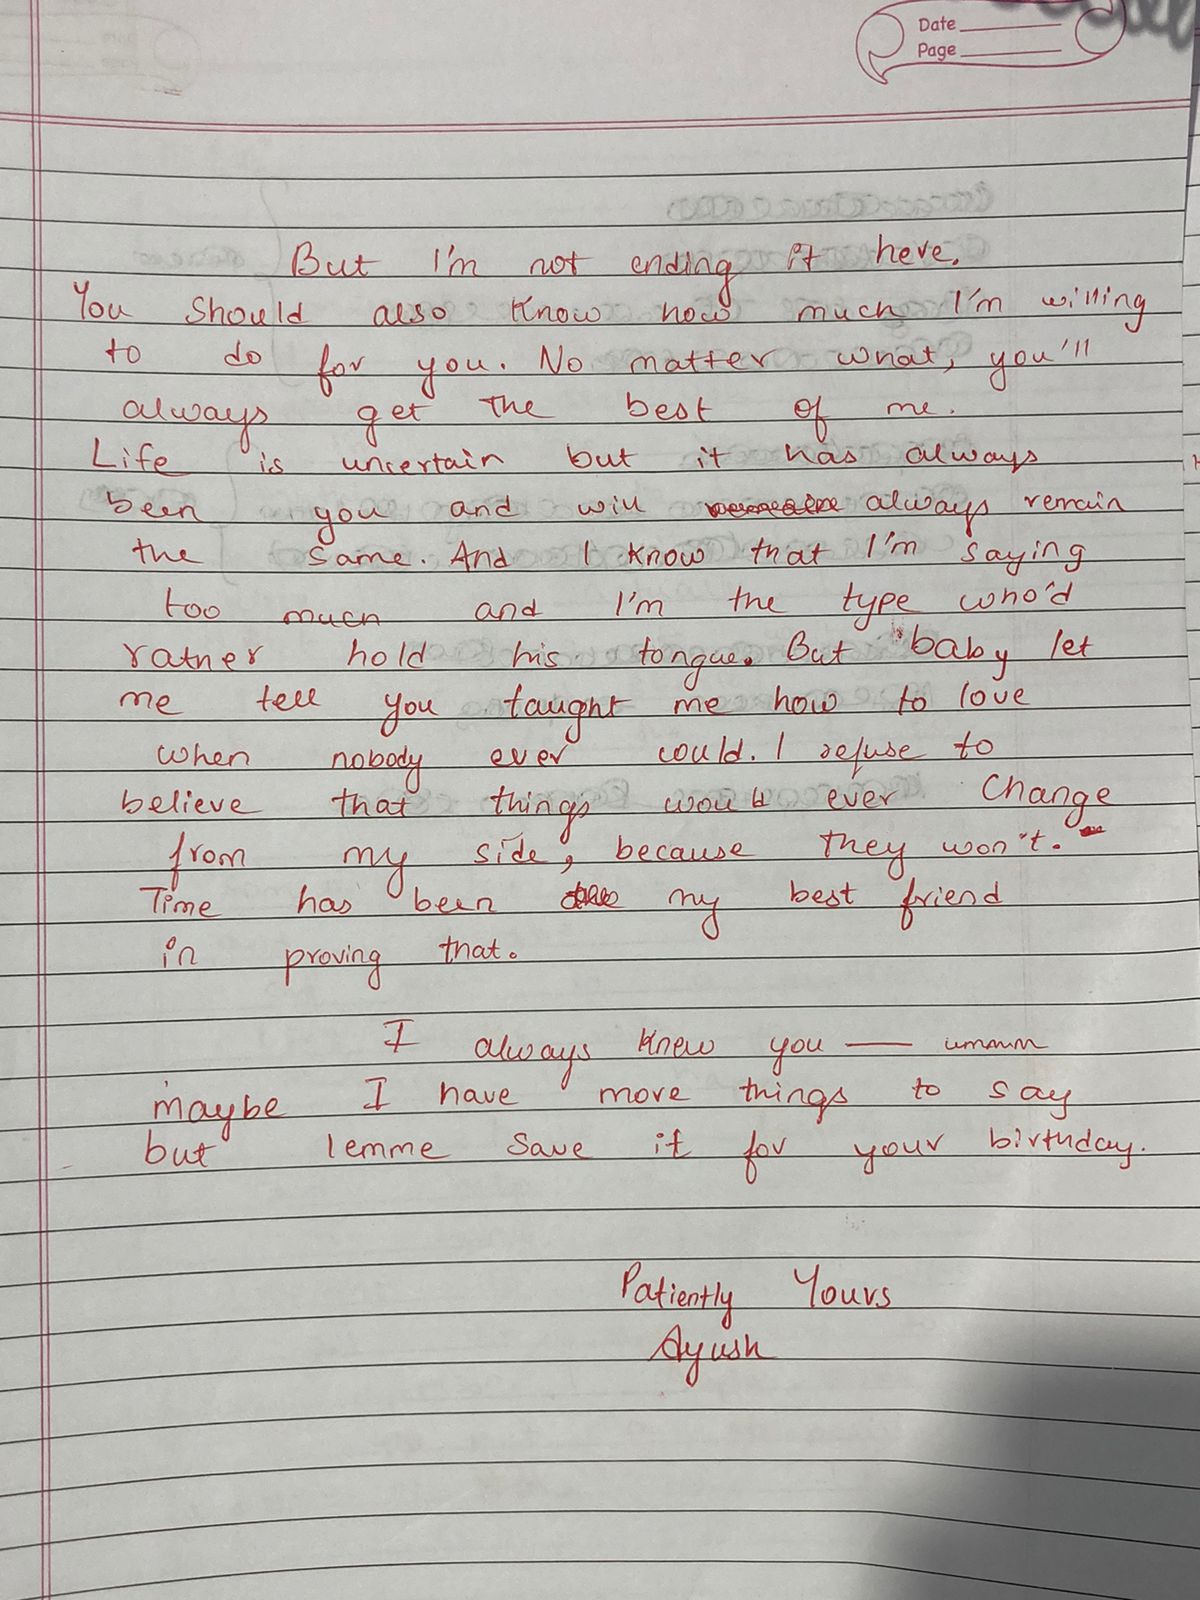 Date
Page
But I'm not ending it here.
You should also know how much I'm willing
to do for you. No matter what, you'll
always get the best of me.
Life is uncertain but it has always
been you and will always remain
the same. And I know that I'm saying
too much and I'm the type who'd
rather hold his tongue. But baby let
me tell you taught me how to love
when nobody ever could. I refuse to
believe that things would ever change
from my side, because they won't.
Time has been my best friend
in proving that.
I always knew you — ummm
maybe I have more things to say
but lemme save it for your birthday.
Patiently Yours
Ayush